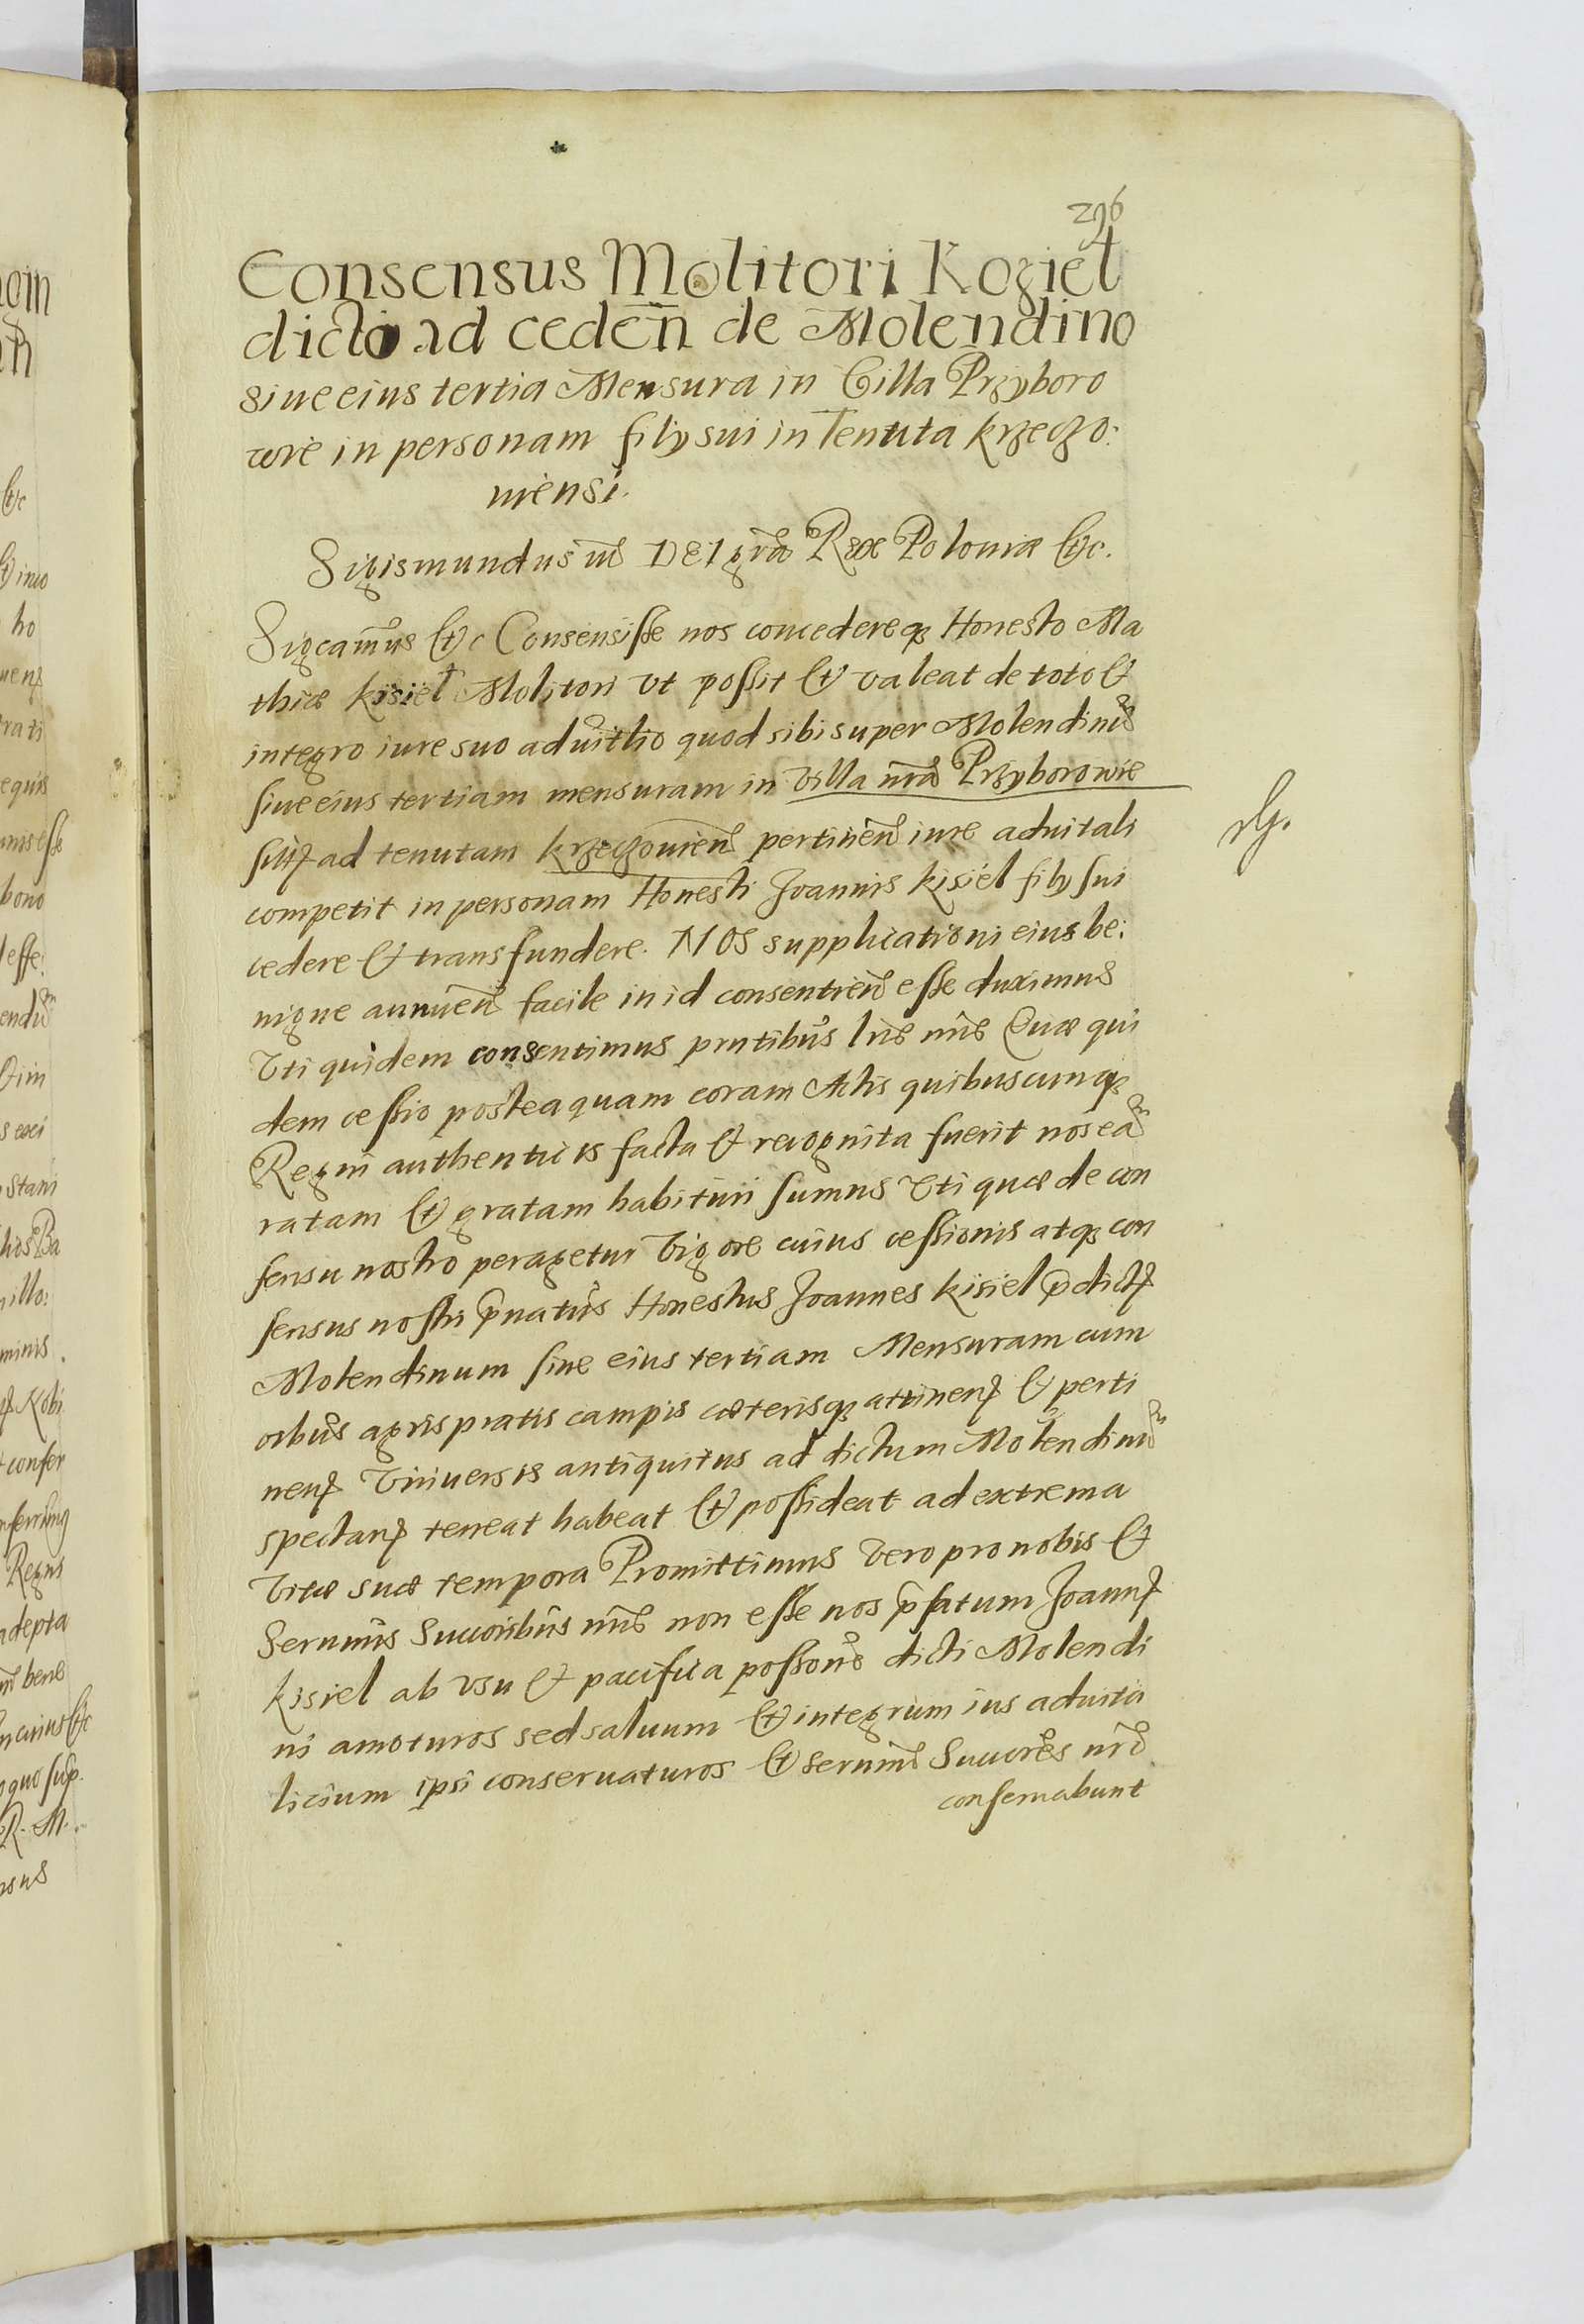 296
Consensus Molitori Koziel
dicto ad ceden̄ de Molendino
siue eius tertia Mensura in Villa Przyboro
wie in personam filij sui in Tenuta krzeczo:
niensi.
Sigismundus iii DEI gra Rex Poloniæ &c.
Sigcamus &c Consensisse nos concedereq Honesto Ma
thiæ kisiel Molitori vt possit & valeat de toto &
integro iure suo aduitlio quod sibi super Molendinu
siue eius tertiam mensuram in villa nra Przyborowie
sitη ad tenutam krzeczonien pertinen iure aduitali
competit in personam Honesti Joannis kisiel filij sui
cedere & transfundere. NOS supplicationi eius be:
nigne annuen facile in id consentien esse duximus
Vti quidem consentimus prntibus lris nris Quæ qui
dem cessio posteaquam coram Actis quibuscumq
Regni authenticis facta & recognita fuerit nos eā
ratam & gratam habituri sumus Vti quæ de con
sensu nostro peragetur Vigore cuius cessionis atq con
sensus nostri p̄natus Honestus Joannes kisiel p̄dictη
Molendinum siue eius tertiam Mensuram cum
oibus agris pratis campis cæterisq attinenη & perti
nenη Vniuersis antiquitus ad dictum Molendinu
spectanη teneat habeat & possideat ad extrema
Vitæ suæ tempora Promittimus Vero pro nobis &
Sernmis Succoribus nris non esse nos p̄fatum Joannη
kisiel ab vsu & pacifica possone dicti Molendi
ni amoturos sed saluum & integrum ius aduita
licium ipsi conseruaturos & Sernmi Succores nri
conseruabunt